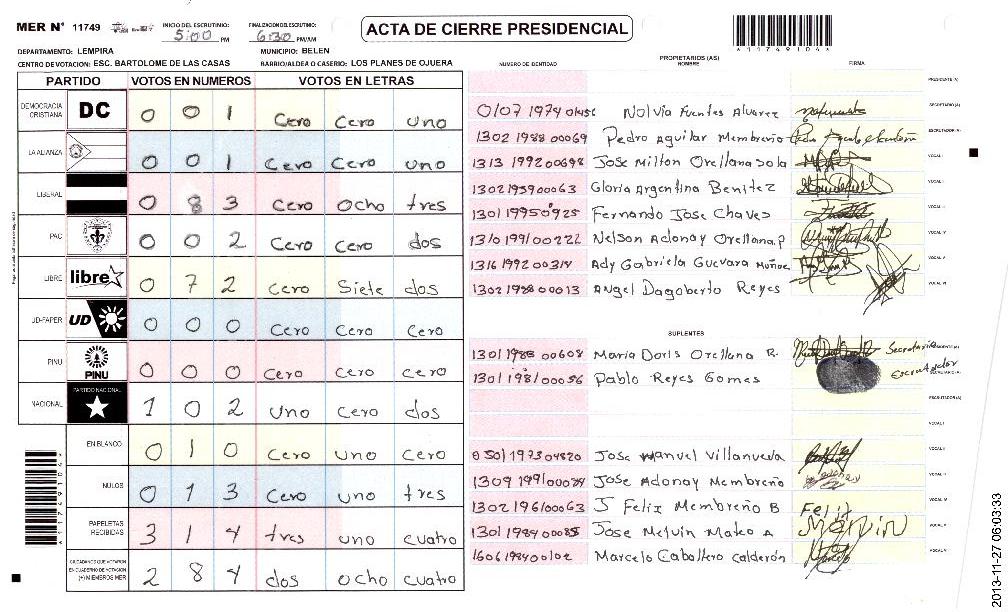 MER N° 11749
INICIO DEL ESCRUTINIO: 5:00 PM
FINALIZACION DEL ESCRUTINIO: 6:30 PM/AM
ACTA DE CIERRE PRESIDENCIAL
*11749104*
DEPARTAMENTO: LEMPIRA
MUNICIPIO: BELEN
CENTRO DE VOTACION: ESC. BARTOLOME DE LAS CASAS
BARRIO/ALDEA O CASERIO: LOS PLANES DE OJUERA
PARTIDO VOTOS EN NUMEROS VOTOS EN LETRAS
DEMOCRACIA CRISTIANA DC 0 0 1 Cero Cero uno
LA ALIANZA 0 0 1 Cero Cero uno
LIBERAL 0 8 3 Cero Ocho tres
PAC 0 0 2 Cero Cero dos
LIBRE libre 0 7 2 Cero Siete dos
UD-FAPER UD 0 0 0 Cero Cero Cero
PINU PINU 0 0 0 Cero Cero Cero
NACIONAL PARTIDO NACIONAL 1 0 2 uno Cero dos
EN BLANCO 0 1 0 Cero uno Cero
NULOS 0 1 3 Cero uno tres
PAPELETAS RECIBIDAS 3 1 4 tres uno cuatro
CIUDADANOS QUE VOTARON EN CUADERNO DE VOTACION (+) MIEMBROS MER 2 8 4 dos Ocho Cuatro
*11749104*
PROPIETARIOS (AS)
NUMERO DE IDENTIDAD NOMBRE FIRMA
PRESIDENTE (A)
Nolvia Fuentes Alvarez SECRETARIO (A)
1302 1988 00069 Pedro Aguilar Membreño ESCRUTADOR (A)
1313 1992 00698 Jose Milton Orellana sola VOCAL I
1302 1959 00063 Gloria Argentina Benitez VOCAL II
1301 1995 0925 Fernando Jose Chaves VOCAL III
1310 1991 00222 Nelson Adonay Orellana.P VOCAL IV
1316 1992 00314 Ady Gabriela Guevara Muñoz VOCAL V
1302 1988 00013 Angel Dagoberto Reyes VOCAL VI
SUPLENTES
1301 1988 00608 Maria Doris Orellana R. Secretaria PRESIDENTE (A)
1301 1981 00056 Pablo Reyes Gomes Escrutador SECRETARIO (A)
ESCRUTADOR (A)
VOCAL I
0501 1973 04820 Jose Manuel Villanueva VOCAL II
1309 1991 00074 Jose Adonay Membreño VOCAL III
1302 1961 00063 J Felix Membreño B Felix VOCAL IV
1301 1984 00085 Jose Melvin Mateo A Marvin VOCAL V
1606 1984 00102 Marcelo Caballero Calderón VOCAL VI
2013-11-27 06:03:33